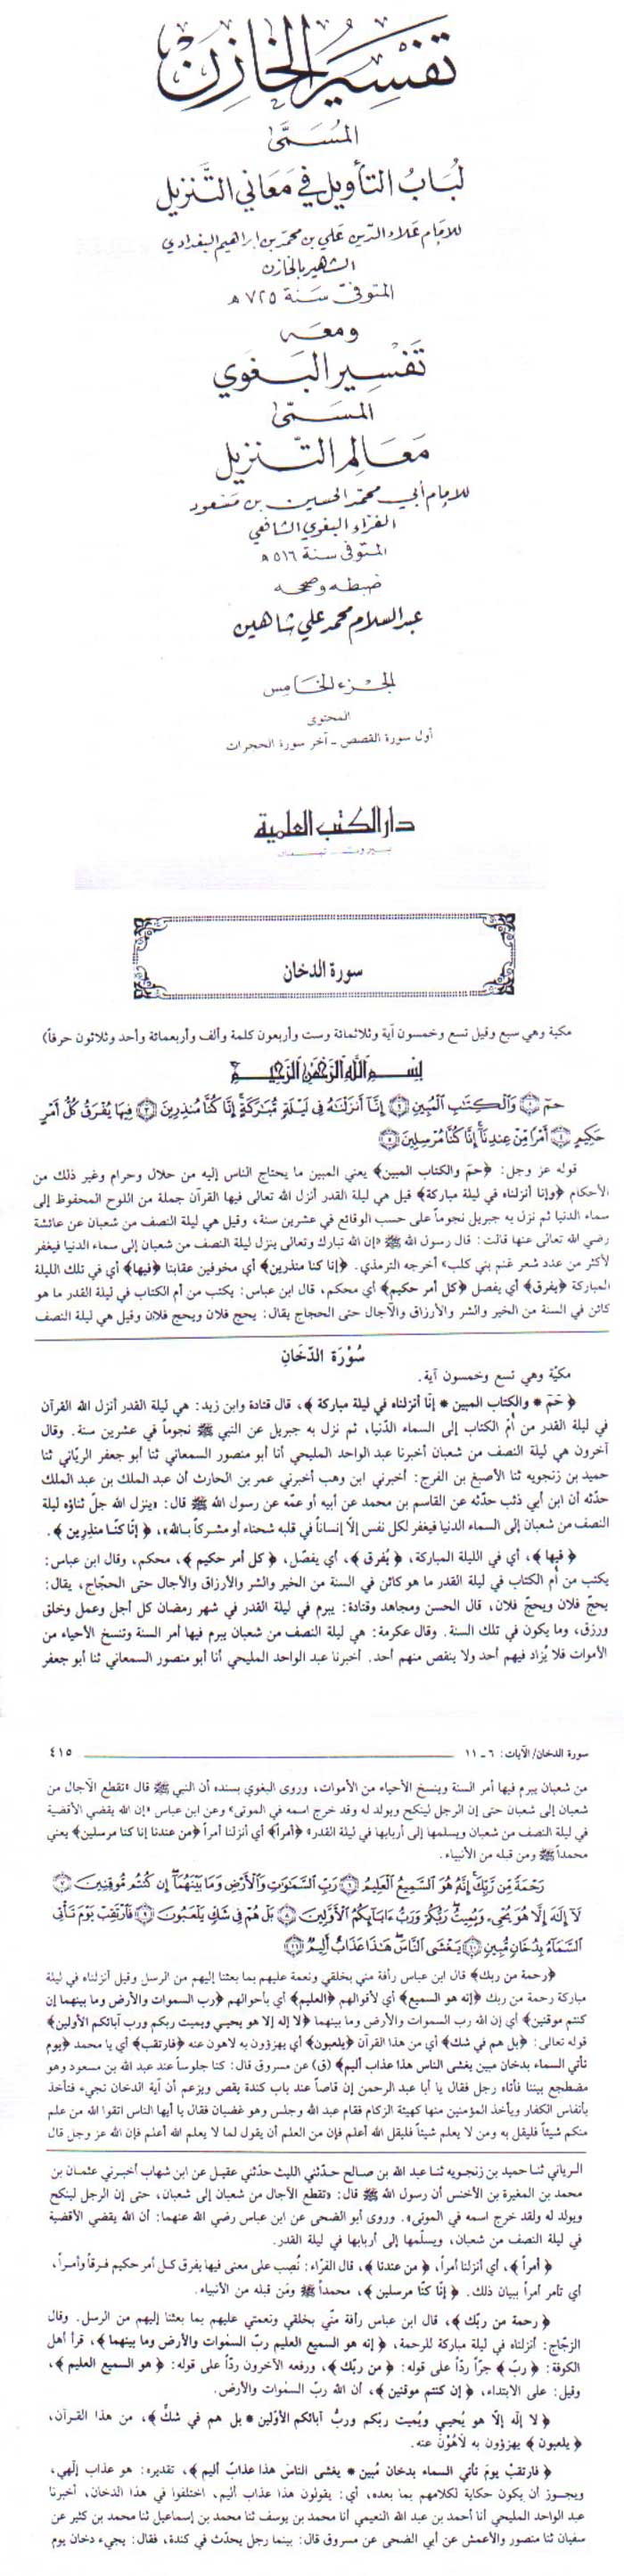 تفسير الخازن
المسمى
لباب التأويل في معاني التنزيل
للإمام علاء الدين علي بن محمد بن ابراهيم البغدادي
الشهير بالخازن
المتوفى سنة ٧٢٥ هـ
ومعه
تفسير البغوي
المسمى
معالم التنزيل
للإمام أبي محمد الحسين بن مسعود
الفراء البغوي الشافعي
المتوفى سنة ٥١٦ هـ
ضبطه وصححه
عبد السلام محمد علي شاهين
الجزء الخامس
المحتوى
أول سورة القصص - آخر سورة الحجرات
دار الكتب العلمية
بيروت - لبنان
سورة الدخان
مكية وهي سبع وقيل تسع وخمسون آية وثلاثمائة وست وأربعون كلمة وألف وأربعمائة وأحد وثلاثون حرفاً)
بسم الله الرحمن الرحيم
حم ١ والكتاب المبين ٢ إنا أنزلناه في ليلة مباركة إنا كنا منذرين ٣ فيها يفرق كل أمر
حكيم ٤ أمرا من عندنا إنا كنا مرسلين ٥
قوله عز وجل: ﴿حم والكتاب المبين﴾ يعني المبين ما يحتاج الناس إليه من حلال وحرام وغير ذلك من
الأحكام ﴿وإنا أنزلناه في ليلة مباركة﴾ قيل هي ليلة القدر أنزل الله تعالى فيها القرآن جملة من اللوح المحفوظ إلى
سماء الدنيا ثم نزل به جبريل نجوماً على حسب الوقائع في عشرين سنة، وقيل هي ليلة النصف من شعبان عن عائشة
رضي الله تعالى عنها قالت: قال رسول الله ﷺ «إن الله تبارك وتعالى ينزل ليلة النصف من شعبان إلى سماء الدنيا فيغفر
لأكثر من عدد شعر غنم بني كلب» أخرجه الترمذي. ﴿إنا كنا منذرين﴾ أي مخوفين عقابنا ﴿فيها﴾ أي في تلك الليلة
المباركة ﴿يفرق﴾ أي يفصل ﴿كل أمر حكيم﴾ أي محكم، قال ابن عباس: يكتب من أم الكتاب في ليلة القدر ما هو
كائن في السنة من الخير والشر والأرزاق والآجال حتى الحجاج يقال: يحج فلان ويحج فلان وقيل هي ليلة النصف
سورة الدخان
مكيّة وهي تسع وخمسون آية.
﴿حم * والكتاب المبين * إنّا أنزلناه في ليلة مباركة﴾، قال قتادة وابن زيد: هي ليلة القدر أنزل الله القرآن
في ليلة القدر من أم الكتاب إلى السماء الدّنيا، ثم نزل به جبريل عن النبي ﷺ نجوماً في عشرين سنة. وقال
آخرون هي ليلة النصف من شعبان أخبرنا عبد الواحد المليحي أنا أبو منصور السمعاني ثنا أبو جعفر الريّاني ثنا
حميد بن زنجويه ثنا الأصبغ بن الفرج: أخبرني ابن وهب أخبرني عمر بن الحارث أن عبد الملك بن عبد الملك
حدّثه أن ابن أبي ذئب حدّثه عن القاسم بن محمد عن أبيه أو عمّه عن رسول الله ﷺ قال: «ينزل الله جلّ ثناؤه ليلة
النصف من شعبان إلى السماء الدنيا فيغفر لكل نفس إلّا إنساناً في قلبه شحناء أو مشركاً بالله»، ﴿إنّا كنّا منذرين﴾.
﴿فيها﴾، أي في الليلة المباركة، ﴿يُفرق﴾، أي يفصّل، ﴿كل أمر حكيم﴾، محكم، وقال ابن عباس:
يكتب من أم الكتاب في ليلة القدر ما هو كائن في السنة من الخير والشر والأرزاق والآجال حتى الحجّاج، يقال:
يحجّ فلان ويحجّ فلان، قال الحسن ومجاهد وقتادة: يبرم في ليلة القدر في شهر رمضان كل أجل وعمل وخلق
ورزق، وما يكون في تلك السنة. وقال عكرمة: هي ليلة النصف من شعبان يبرم فيها أمر السنة وتنسخ الأحياء من
الأموات فلا يُزاد فيهم أحد ولا ينقص منهم أحد. أخبرنا عبد الواحد المليحي أنا أبو منصور السمعاني ثنا أبو جعفر
سورة الدخان/ الآيات: ٦ - ١١ ٤١٥
من شعبان يبرم فيها أمر السنة وينسخ الأحياء من الأموات، وروى البغوي بسنده أن النبي ﷺ قال «تقطع الآجال من
شعبان إلى شعبان حتى إن الرجل لينكح ويولد له وقد خرج اسمه في الموتى» وعن ابن عباس «إن الله يقضي الأقضية
في ليلة النصف من شعبان ويسلمها إلى أربابها في ليلة القدر» ﴿أمراً﴾ أي أنزلنا أمراً ﴿من عندنا إنا كنا مرسلين﴾ يعني
محمداً ﷺ ومن قبله من الأنبياء.
رحمة من ربك إنه هو السميع العليم ٦ رب السماوات والأرض وما بينهما إن كنتم موقنين ٧
لا إله إلا هو يحيي ويميت ربكم ورب آبائكم الأولين ٨ بل هم في شك يلعبون ٩ فارتقب يوم تأتي
السماء بدخان مبين ١٠ يغشى الناس هذا عذاب أليم ١١
﴿رحمة من ربك﴾ قال ابن عباس رأفة مني بخلقي ونعمة عليهم بما بعثنا إليهم من الرسل وقيل أنزلناه في ليلة
مباركة رحمة من ربك ﴿إنه هو السميع﴾ أي لأقوالهم ﴿العليم﴾ أي بأحوالهم ﴿رب السموات والأرض وما بينهما إن
كنتم موقنين﴾ أي إن الله رب السموات والأرض وما بينهما ﴿لا إله إلا هو يحيي ويميت ربكم ورب آبائكم الأولين﴾
قوله تعالى: ﴿بل هم في شك﴾ أي من هذا القرآن ﴿يلعبون﴾ أي يهزؤون به لاهون عنه ﴿فارتقب﴾ أي يا محمد ﴿يوم
تأتي السماء بدخان مبين يغشى الناس هذا عذاب أليم﴾ (ق) عن مسروق قال: كنا جلوساً عند عبد الله بن مسعود وهو
مضطجع بيننا فأتاه رجل فقال يا أبا عبد الرحمن إن قاصاً عند باب كندة يقص ويزعم أن آية الدخان تجيء فتأخذ
بأنفاس الكفار ويأخذ المؤمنين منها كهيئة الزكام فقام عبد الله وجلس وهو غضبان فقال يا أيها الناس اتقوا الله من علم
منكم شيئاً فليقل به ومن لا يعلم شيئاً فليقل الله أعلم فإن من العلم أن يقول لما لا يعلم الله أعلم فإن الله عز وجل قال
الرياني ثنا حميد بن زنجويه ثنا عبد الله بن صالح حدّثني الليث حدّثني عقيل عن ابن شهاب أخبرني عثمان بن
محمد بن المغيرة بن الأخنس أن رسول الله ﷺ قال: «تقطع الآجال من شعبان إلى شعبان، حتى إن الرجل لينكح
ويولد له ولقد خرج اسمه في الموتى». وروى أبو الضحى عن ابن عباس رضي الله عنهما: أن الله يقضي الأقضية
في ليلة النصف من شعبان، ويسلّمها إلى أربابها في ليلة القدر.
﴿أمراً﴾، أي أنزلنا أمراً، ﴿من عندنا﴾، قال الفرّاء: نُصِب على معنى فيها يفرق كل أمر حكيم فرقاً وأمراً،
أي نأمر أمراً ببيان ذلك. ﴿إنّا كنّا مرسلين﴾، محمداً ﷺ ومَن قبله من الأنبياء.
﴿رحمة من ربّك﴾، قال ابن عباس رأفة منّي بخلقي ونعمتي عليهم بما بعثنا إليهم من الرسل. وقال
الزجّاج: أنزلناه في ليلة مباركة للرحمة، ﴿إنه هو السميع العليم ربّ السموات والأرض وما بينهما﴾، قرأ أهل
الكوفة: ﴿ربّ﴾ جرّاً ردّاً على قوله: ﴿من ربّك﴾، ورفعه الآخرون ردّاً على قوله: ﴿هو السميع العليم﴾،
وقيل: على الابتداء، ﴿إن كنتم موقنين﴾، أن الله ربّ السموات والأرض.
﴿لا إله إلّا هو يُحيي ويُميت ربّكم وربُّ آبائكم الأوّلين * بل هم في شكٍّ﴾، من هذا القرآن،
﴿يلعبون﴾ يهزؤون به لاهُوْنَ عنه.
﴿فارتقبْ يومَ تأتي السماء بدخان مُبين * يغشى الناسَ هذا عذابٌ أليم﴾، تقديره: هو عذاب إلهي،
ويجوز أن يكون حكاية لكلامهم بما بعده، أي: يقولون هذا عذاب أليم، اختلفوا في هذا الدخان، أخبرنا
عبد الواحد المليحي أنا أحمد بن عبد الله النعيمي أنا محمد بن يوسف ثنا محمد بن إسماعيل ثنا محمد بن كثير عن
سفيان ثنا منصور والأعمش عن أبي الضحى عن مسروق قال: بينما رجل يحدّث في كندة، فقال: يجيء دخان يوم